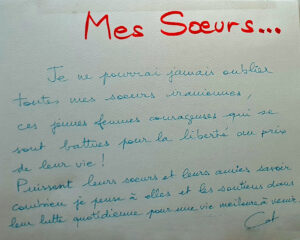 Mes Sœurs...
Je ne pourrai jamais oublier
toutes mes soeurs iraniennes,
ces jeunes femmes courageuses qui se
sont battues pour la liberté au prix
de leur vie !
Puissent leurs soeurs et leurs amies savoir
combien je pense à elles et les soutiens dans
leur lutte quotidienne pour une vie meilleure à venir
Cat